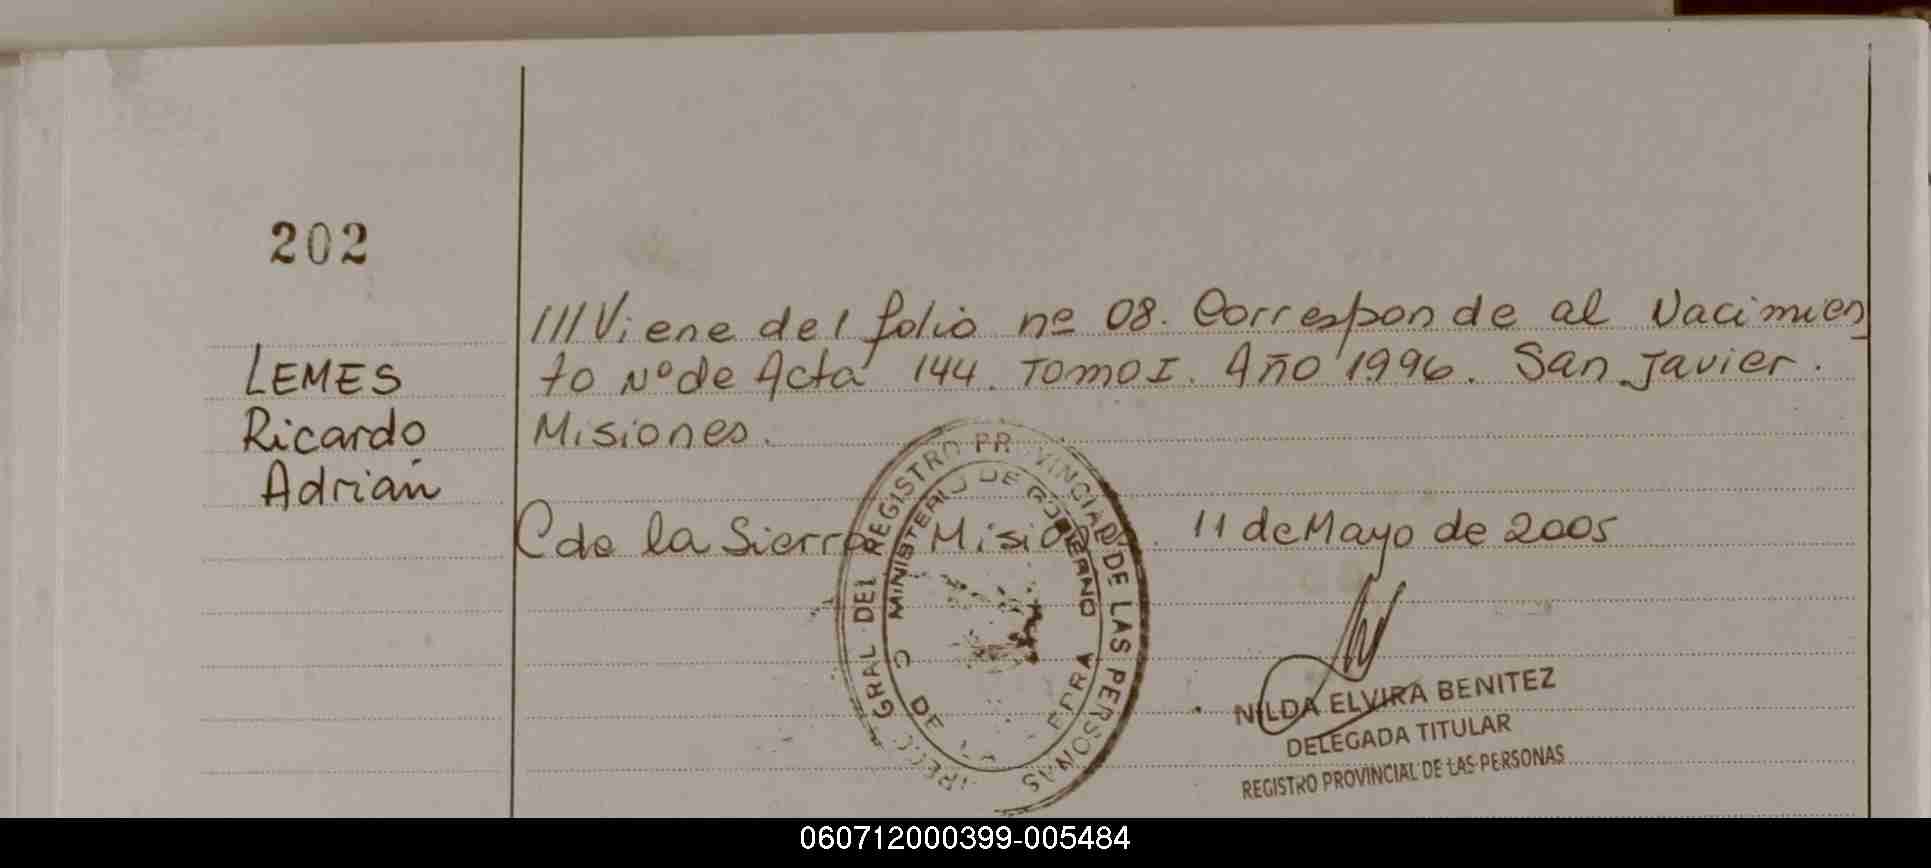 202
LEMES
Ricardo
Adrián
///Viene del folio nº 08. Corresponde al Nacimien
to Nº de Acta 144. Tomo I. Año 1996. San Javier.
Misiones.
C de la Sierra Misiones. 11 de Mayo de 2005
GRAL DEL REGISTRO PROVINCIAL DE LAS PERSONAS
MINISTERIO DE GOBIERNO
DE
NILDA ELVIRA BENITEZ
DELEGADA TITULAR
REGISTRO PROVINCIAL DE LAS PERSONAS
060712000399-005484